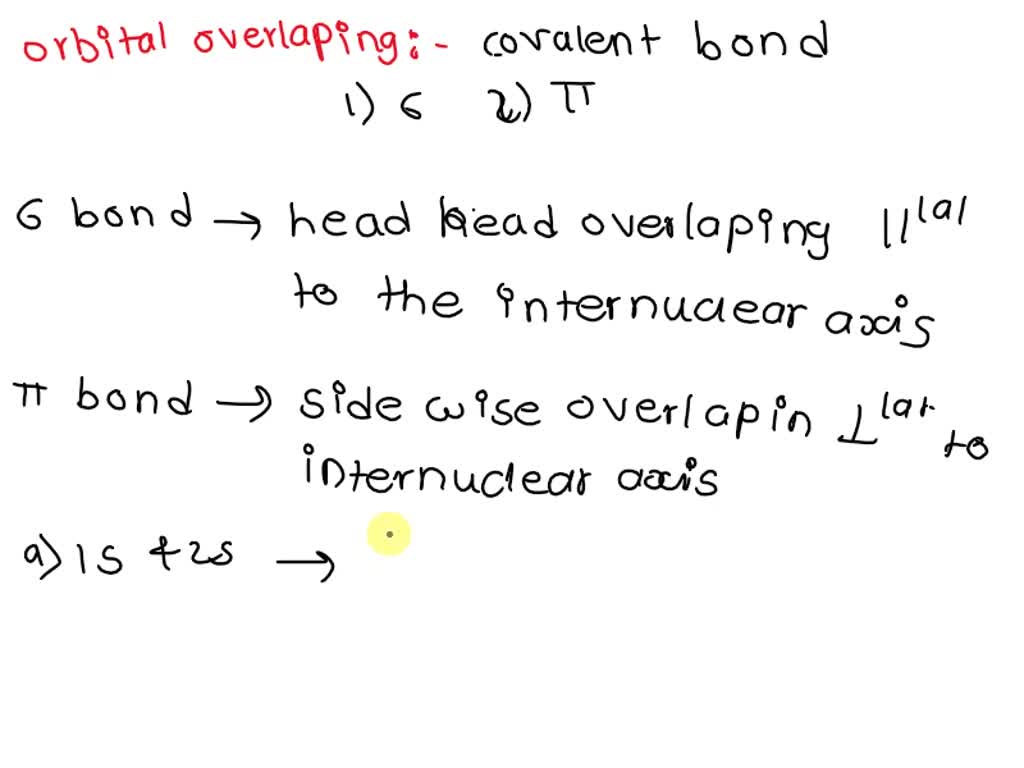 orbital overlaping:- covalent bond
1) 6 2) π
6 bond → head head overlaping ||lal
to the internuclear axis
π bond → side wise overlapin ⊥lar to
internuclear axis
a) 1s & 2s →